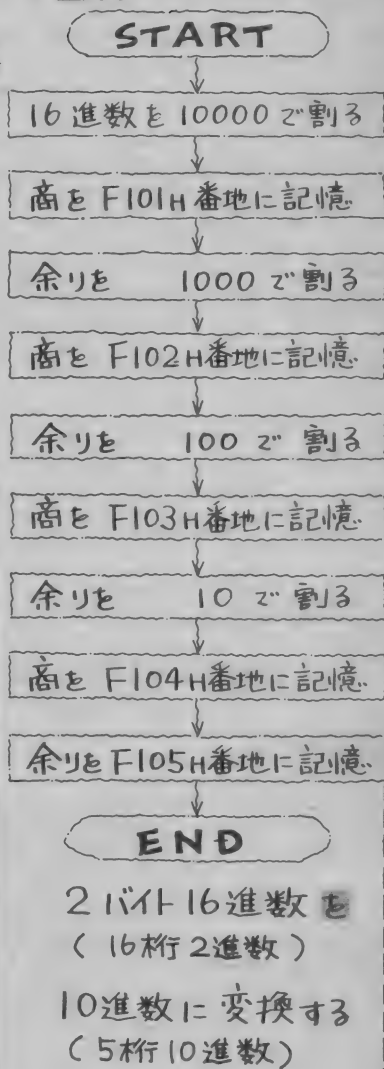 START
16進数を10000で割る
商をF101H番地に記憶
余りを 1000で割る
商をF102H番地に記憶
余りを 100で割る
商をF103H番地に記憶
余りを 10で割る
商をF104H番地に記憶
余りをF105H番地に記憶
END
2バイト16進数を
(16桁2進数)
10進数に変換する
(5桁10進数)